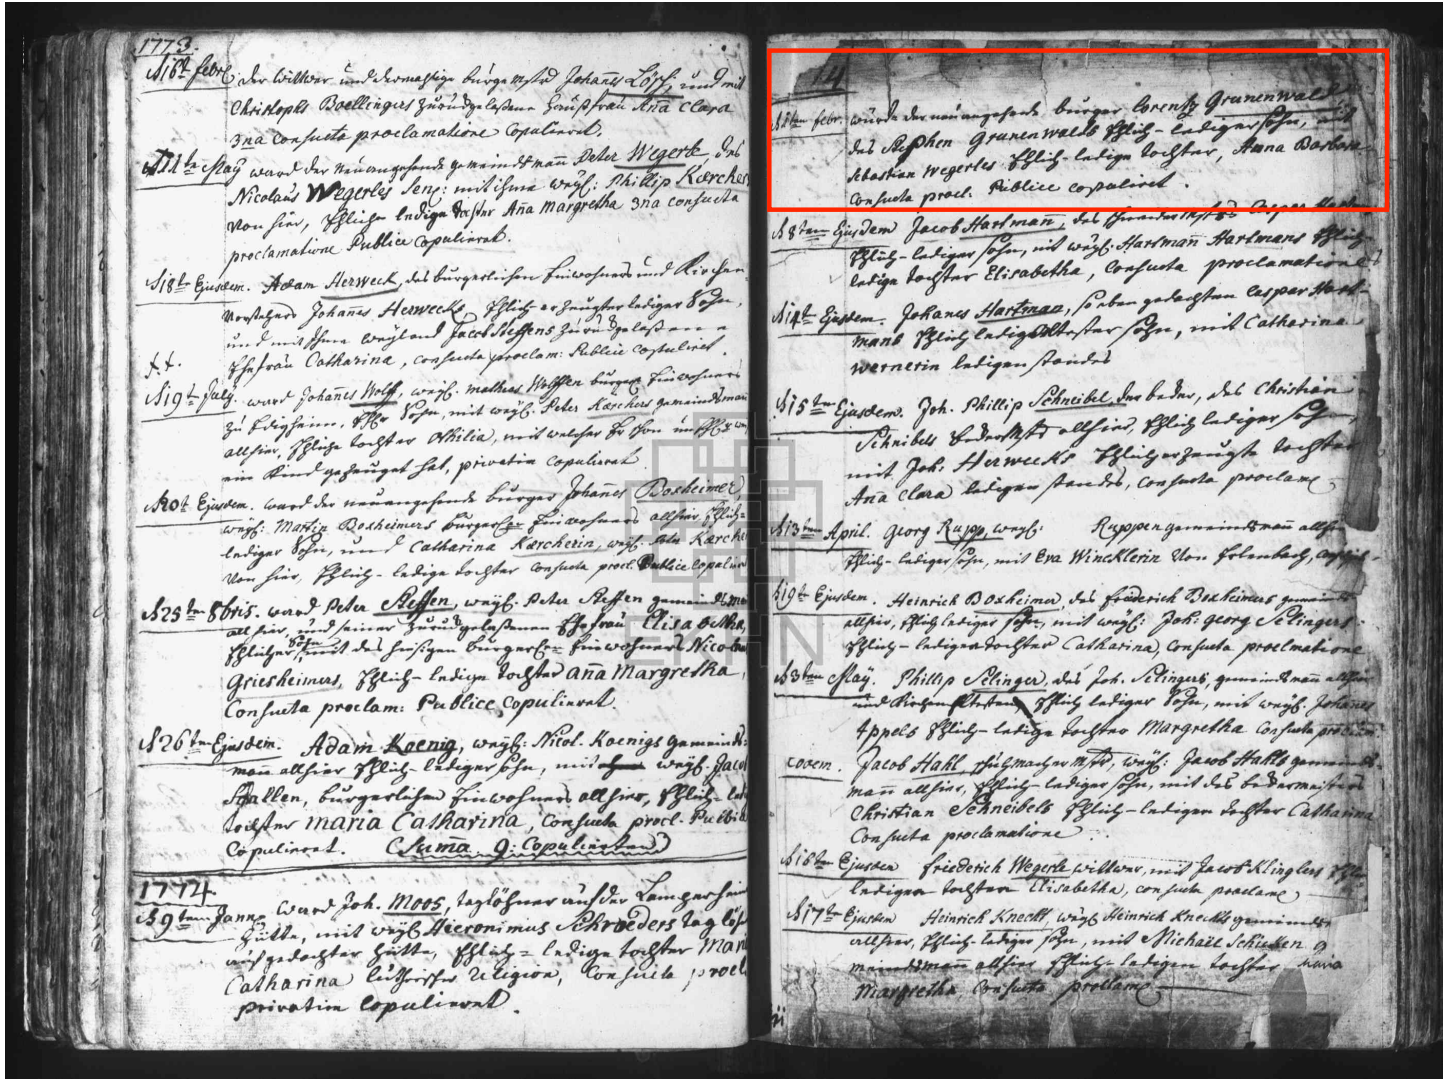 1773.
d 16t febr. der Wittwer und dermahlige bürgermstr Johannes Lösch, und mit
Christophs Boellingers zurückgelaßene Haußfrau Aña Clara
3na Consueta proclamatione Copulieret.
d 11te May ward der neuangehende gemeindsmann Peter Wegerle, des
Nicolaus Wegerles Sen: mit ihme weyl: Phillip Kærchers
von hier, Ehliche ledige tochter Aña Margretha 3na consueta
proclamatione Publice Copulieret.
d 18t Ejusdem. Adam Herweck, des bürgerlichen Einwohners und Kirchen-
vorstehers Johanes Herwecks Ehlich erzeugter lediger Sohn,
und mit Ihme weyland Jacob Steffens zurückgelaßene
Ehefrau Catharina, consueta proclam: Publice copulieret.
d 19t July. ward Johañes Wolff, weyl. mathias Wolffen bürger Einwohners
zu Edigheim, Sohn, mit weyl. Peter Kærchers gemeindsmañ
allhier, Ehliche tochter Othilia, mit welcher Er schon
ein Kind gezeuget hat, privatim copulieret
d 20t Ejusdem. ward der neuangehende bürger Johañes Boxheimer
weyl: Martin Boxheimers bürgerl: Einwohners allhier Ehlich-
lediger Sohn, und Catharina Kærcherin, weyl. Kærchers
von hier, Ehlich-ledige tochter consueta procl. Publice Copulieret
d 25ten 8bris. ward Peter Steffen, weyl. Peter Steffen gemeindsmañ
allhier, und seiner zurückgelaßenen Ehefrau Elisabetha,
Ehlicher Sohn, mit des hiesigen bürgerl: Einwohners Nicolaus
Griesheimers, Ehlich-ledige tochter aña Margretha,
Consueta proclam: Publice Copulieret.
d 26ten Ejusdem. Adam Koenig, weyl: Nicol. Koenigs gemeinds-
mañ allhier Ehlich-lediger Sohn, mit weyl. Jacob
Schallen, bürgerlichen Einwohners allhier, Ehlich-ledige
tochter maria Catharina, Consueta procl. Publice
Copulieret. (Suma 9: Copulierten)
1774
d 9ten Jann. ward Joh. Moos, taglöhner auf der Lamperheimer
Hütte, mit weyl. Hieronimus Schroeders taglöhner
auf gedachter Hütte, Ehlich-ledige tochter Maria
Catharina Luthrischer Religion, Consueta procl
privatim Copulieret.
14
d 1ten febr. wurde der neuangehende bürger Lorentz Grunenwald
des Stephen Grunenwalds Ehlich-lediger Sohn, mit
Sebastian Wegerles Ehlich-ledige tochter, Anna Barbara
Consueta procl. Publice copuliret.
d 8ten Ejusdem Jacob Hartmañ, des Caspar
Ehlich-lediger Sohn, mit weyl: Hartmañ Hartmans Ehlich-
ledige tochter Elisabetha, Consueta proclamatione
d 14t Ejusdem. Johanes Hartman, so eben gedachten Caspar Hart-
mans Ehlich lediger Sohn, mit Catharina
Wernerin ledigen standes
d 15ten Ejusdem. Joh. Phillip Schneibel, der beder, des Christian
Schnibels beders allhier, Ehlich lediger Sohn
mit Joh. Herwecks Ehlich erzeugte tochter
Ana Clara ledigen standes, Consueta proclame
d 13ten April. Georg Rupp, weyl: Ruppen gemeindsmañ allhier
Ehlich-lediger Sohn, mit Eva Wincklerin von Erlenbach,
d 19t Ejusdem. Heinrich Boxheimer, des friederich Boxheimers gemeinds
allhier, Ehlich lediger Sohn, mit weyl: Joh: Georg Selingers
Ehlich-ledigen tochter Catharina, Consueta proclmatione
d 3ten May. Phillip Selinger, des Joh. Selingers, gemeindsmañ allhier
und Kirchen Eltesten Ehlich lediger Sohn, mit weyl. Johanes
Appels Ehlich-ledige tochter Margretha Consueta proclam
eodem. Jacob Hahl, schuhmacher Mstr, weyl: Jacob Hahls gemeinds-
mañ allhier, Ehlich-lediger Sohn, mit des bedermeisters
Christian Schneibels Ehlich-ledigen tochter Catharina
Consueta proclamatione
d 16ten Ejusdem friederich Wegerle wittwer, mit Jacob Klinglers
ledigen tochter Elisabetha, consueta proclame
d 17ten Ejusdem Heinrich Knecht, weyl Heinrich Knechts gemeinds
allhier, Ehlich-lediger Sohn, mit Michael Schücken g
meindsmañ allhier Ehlich-ledigen tochter Maria
Margretha Consueta proclame
EKHN